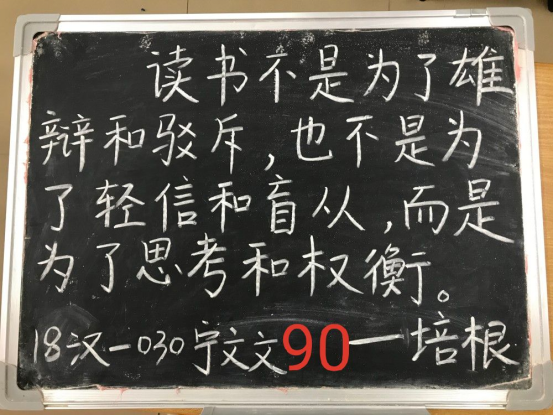 读书不是为了雄
辩和驳斥,也不是为
了轻信和盲从,而是
为了思考和权衡。
18汉一030宁文文90一培根